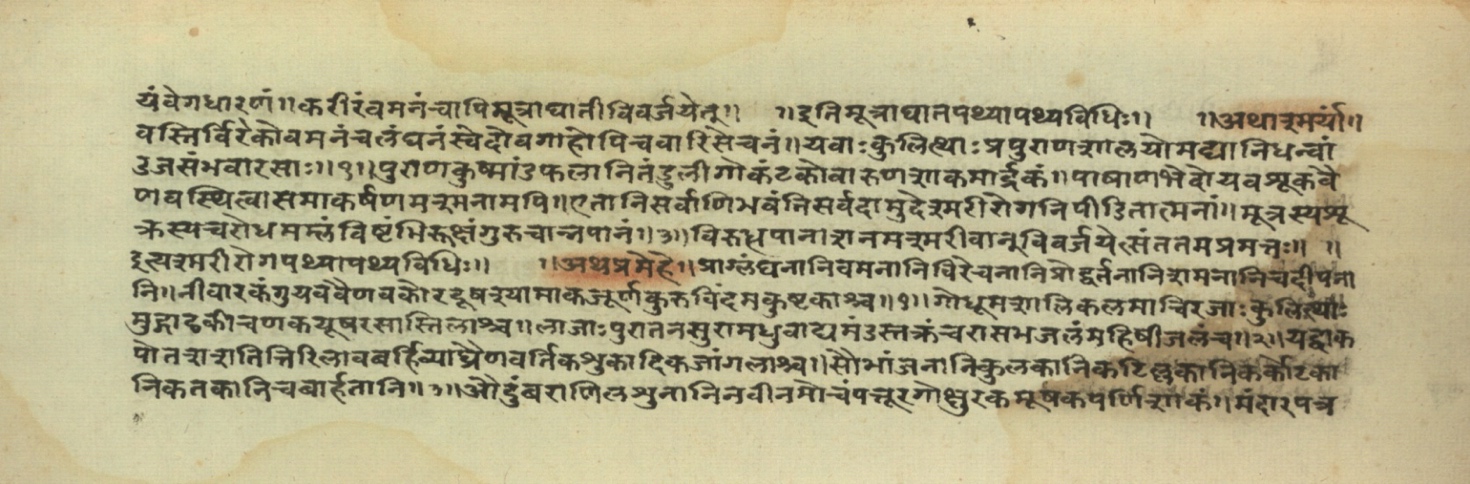 यं वेगधारणं॥ करीरं वमनं चापि मूत्राघाती विवर्जयेत्॥ ॥इति मूत्राघातपथ्यापथ्यविधिः॥ ॥अथाश्मर्या॥
वस्तिर्विरेको वमनं च लंघनं स्वेदोवगाहोपि च वारिसेचनं॥ यवाः कुलित्थाः प्रपुराणशालयो मद्यानि धन्वां
डजसंभवा रसाः॥१॥ पुराणकुष्मांडफलानि तंडुलीगोकंटको वारुणशाकमार्द्रकं॥ पाषाणभेदो यवशूकवे
णवस्थित्वासमाकर्षणमश्मनामपि॥ एतानि सर्वाणि भवंति सर्वदा मुदेश्मरीरोगनिपीडितात्मनां॥ मूत्रस्य शू
क्रस्य च रोधमम्लं विष्टंभिरूक्षं गुरुचान्नपानं॥३॥ विरुद्धपानाशनमश्मरीवानु विवर्जयेत्संततमप्रमत्तः॥ ॥
इत्यश्मरीरोगपथ्यापथ्यविधिः॥ ॥अथ प्रमेहे॥ प्राग्लंघनानि वमनानि विरेचनानि प्रोद्वर्तनानि शमनानि च दीपना
नि॥ नीवारकंगुयववैणवकोरदूषश्यामाकजूर्णकुरुविंदमकुष्टकाश्च॥१॥ गोधूमशालिकलमाचिरजाः कुलित्थाः
मुद्गाढकीचणकयूषरसास्तिलाश्च॥ लाजाः पुरातनसुरामधुवाट्यमंडस्तक्रं च रासभजलं महिषीजलं च॥२॥ यद्वाक
पोतशशतित्तिरिलावबर्हि                  वर्तिकशुकादिकजांगलाश्च॥ सौभांजनानि कुलकानि कटिल्लकानि कर्कोटका
नि कतकानि च बार्हतानि॥३॥ औदुंबराणि लशुनानि नवीनमोचं पत्तूरगोक्षुरकमूषकपर्णिशाकं॥ मंदारपत्र